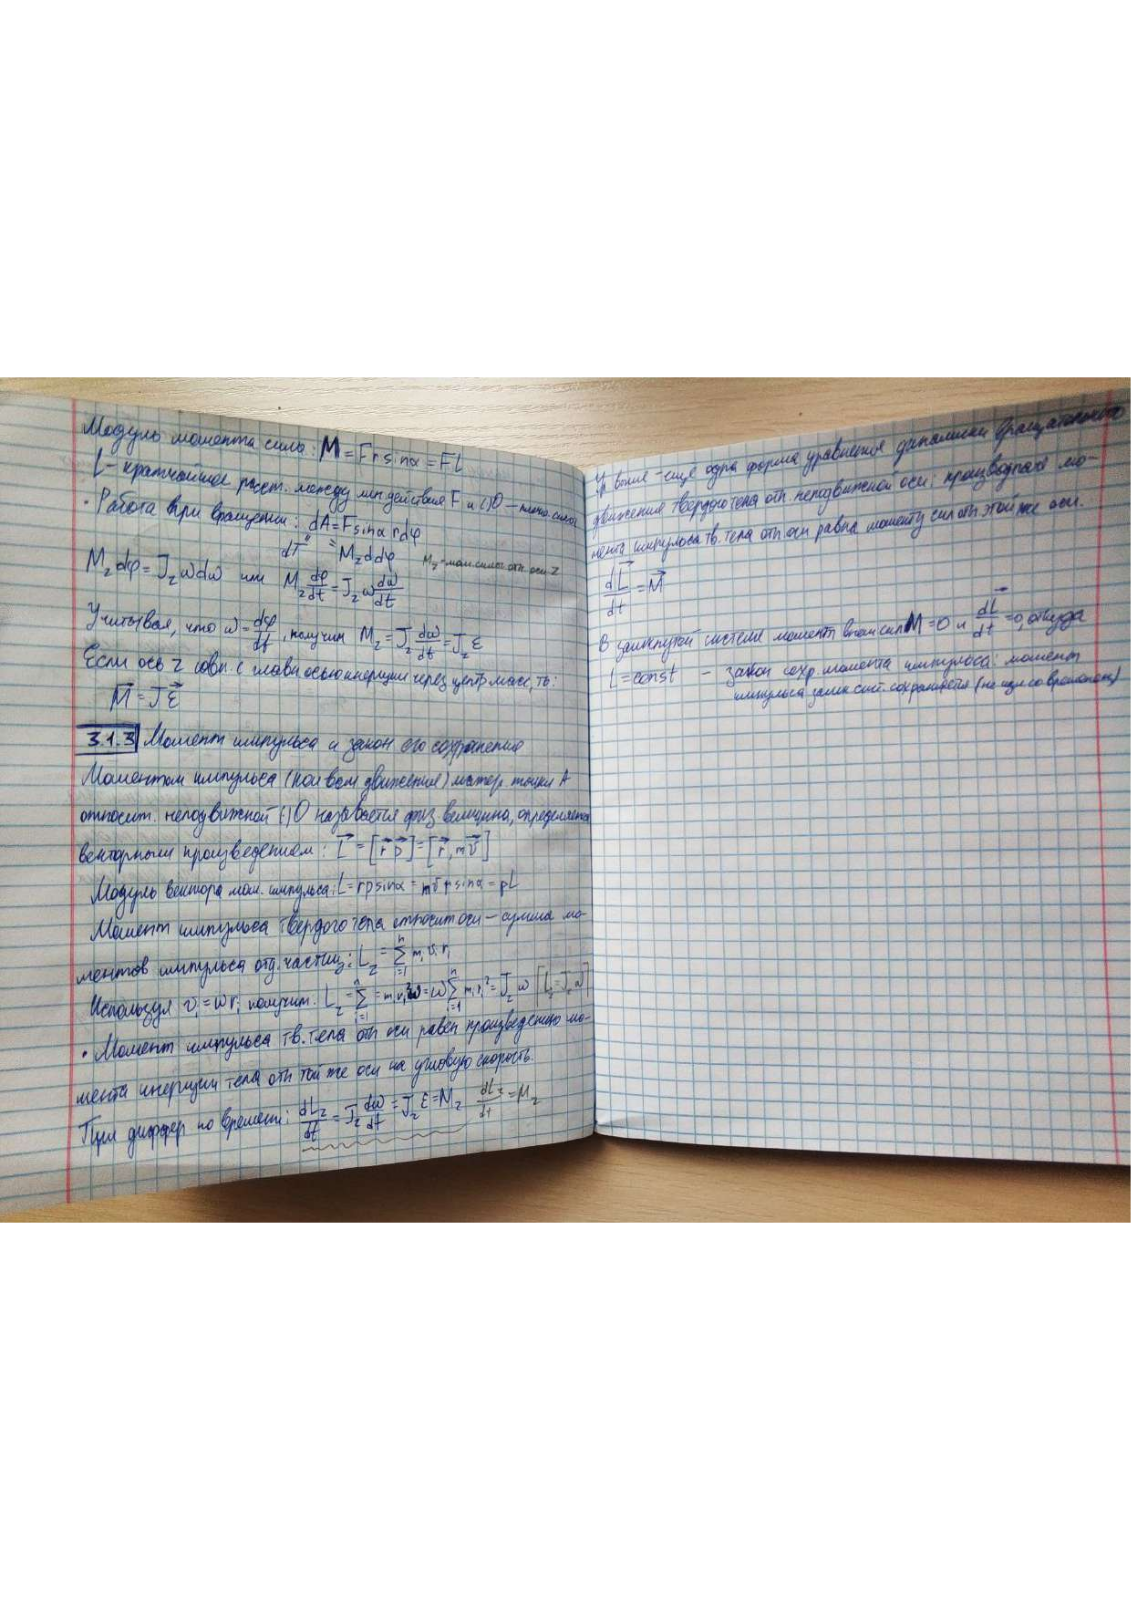 Модуль момента силы: M = F r sinα = Fl
l – кратчайшее расст. между лин действия F и (·)O – плечо силы
· Работа при вращении: dA = F sinα r dφ
dT = M_z dφ
M_z – мом. силы отн. оси z
M_z dφ = J_z ω dω или M_z dφ/dt = J_z ω dω/dt
Учитывая, что ω = dφ/dt, получим M_z = J_z dω/dt = J_z ε
Если ось z совп. с главн осью инерции через центр масс, то:
M⃗ = J ε⃗
3.1.3 Момент импульса и закон его сохранения
Моментом импульса (кол вом движения) матер. точки A
относит. неподвижной (·)O называется физ величина, определяемая
векторным произведением: L⃗ = [r⃗ p⃗] = [r⃗, m v⃗]
Модуль вектора мом. импульса: L = rp sinα = m v r sinα = pL
Момент импульса твердого тела относит оси – сумма мо-
ментов импульса отд. частиц: L_z = Σ_{i=1}^{n} m_i v_i r_i
Используя v_i = ω r_i получим: L_z = Σ_{i=1}^{n} = m_i r_i² ω = ω Σ_{i=1}^{n} m_i r_i² = J_z ω [L_z = J_z ω]
· Момент импульса тв. тела отн оси равен произведению мо-
мента инерции тела отн той же оси на угловую скорость.
Прил диффер по времени: dL_z/dt = J_z dω/dt = J_z ε = M_z dL_z/dt = M_z
– еще одна форма уравнения динамики вращательного
движения твердого тела отн. неподвижной оси: производная мо-
мента импульса тв. тела отн оси равна моменту сил отн этой же оси.
dL⃗/dt = M⃗
В замкнутой системе момент внеш сил M = 0 и dL⃗/dt = 0, откуда
L = const – закон сохр. момента импульса: момент
импульса замк сист. сохраняется (не изм со временем)